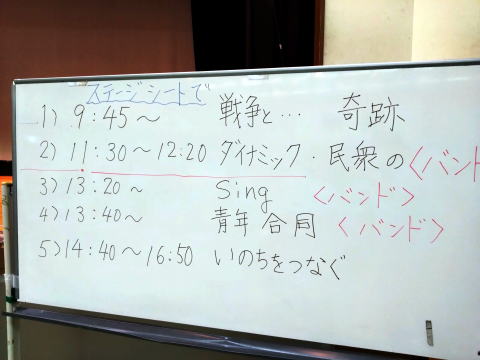 ステージシートで
1) 9:45～ 戦争と… 奇跡
2) 11:30～12:20 ダイナミック・民衆の〈バンド
3) 13:20～ Sing 〈バンド〉
4) 13:40～ 青年合同 〈バンド〉
5) 14:40～16:50 いのちをつなぐ